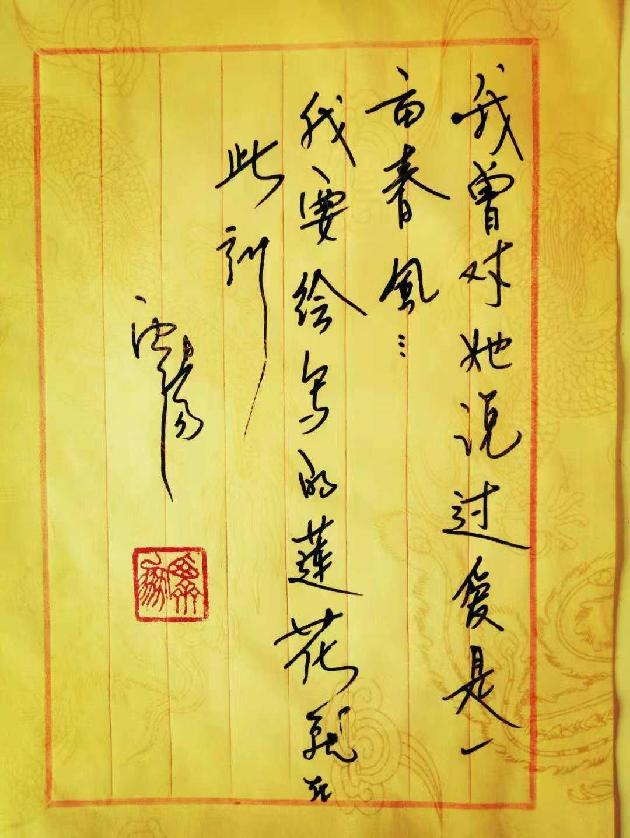 我曾对她说过爱是一
亩春风…
我要绘写的莲花就在
此刻